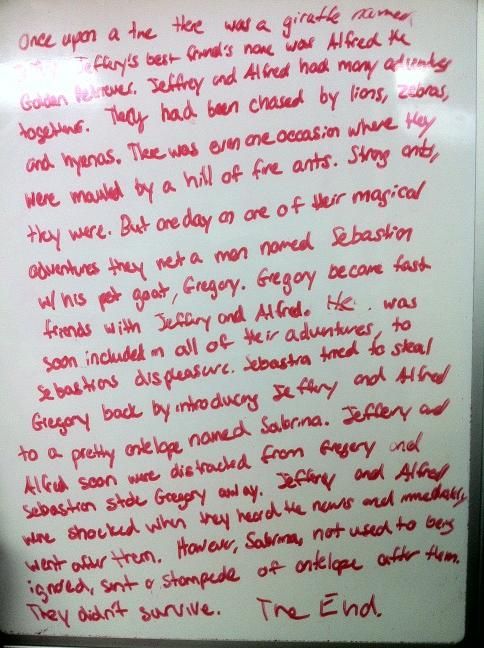 Once upon a time there was a giraffe named
Jeffery's best friend's name was Alfred the
Golden Retriever. Jeffrey and Alfred had many adventures
together. They had been chased by lions, zebras,
and hyenas. There was even one occasion where they
were mauled by a hill of fire ants. Strong ants,
they were. But one day on one of their magical
adventures they met a man named Sebastian
w/ his pet goat, Gregory. Gregory became fast
friends with Jeffery and Alfred. He was
soon included in all of their adventures, to
Sebastions displeasure. Sebastian tried to steal
Gregory back by introducing Jeffery and Alfred
to a pretty antelope named Sabrina. Jeffery and
Alfred soon were distracted from Gregory and
Sebastian stole Gregory away. Jeffrey and Alfred
were shocked when they heard the news and immediately
went after them. However, Sabrina, not used to being
ignored, sent a stampede of antelope after them.
They didn't survive. The End.